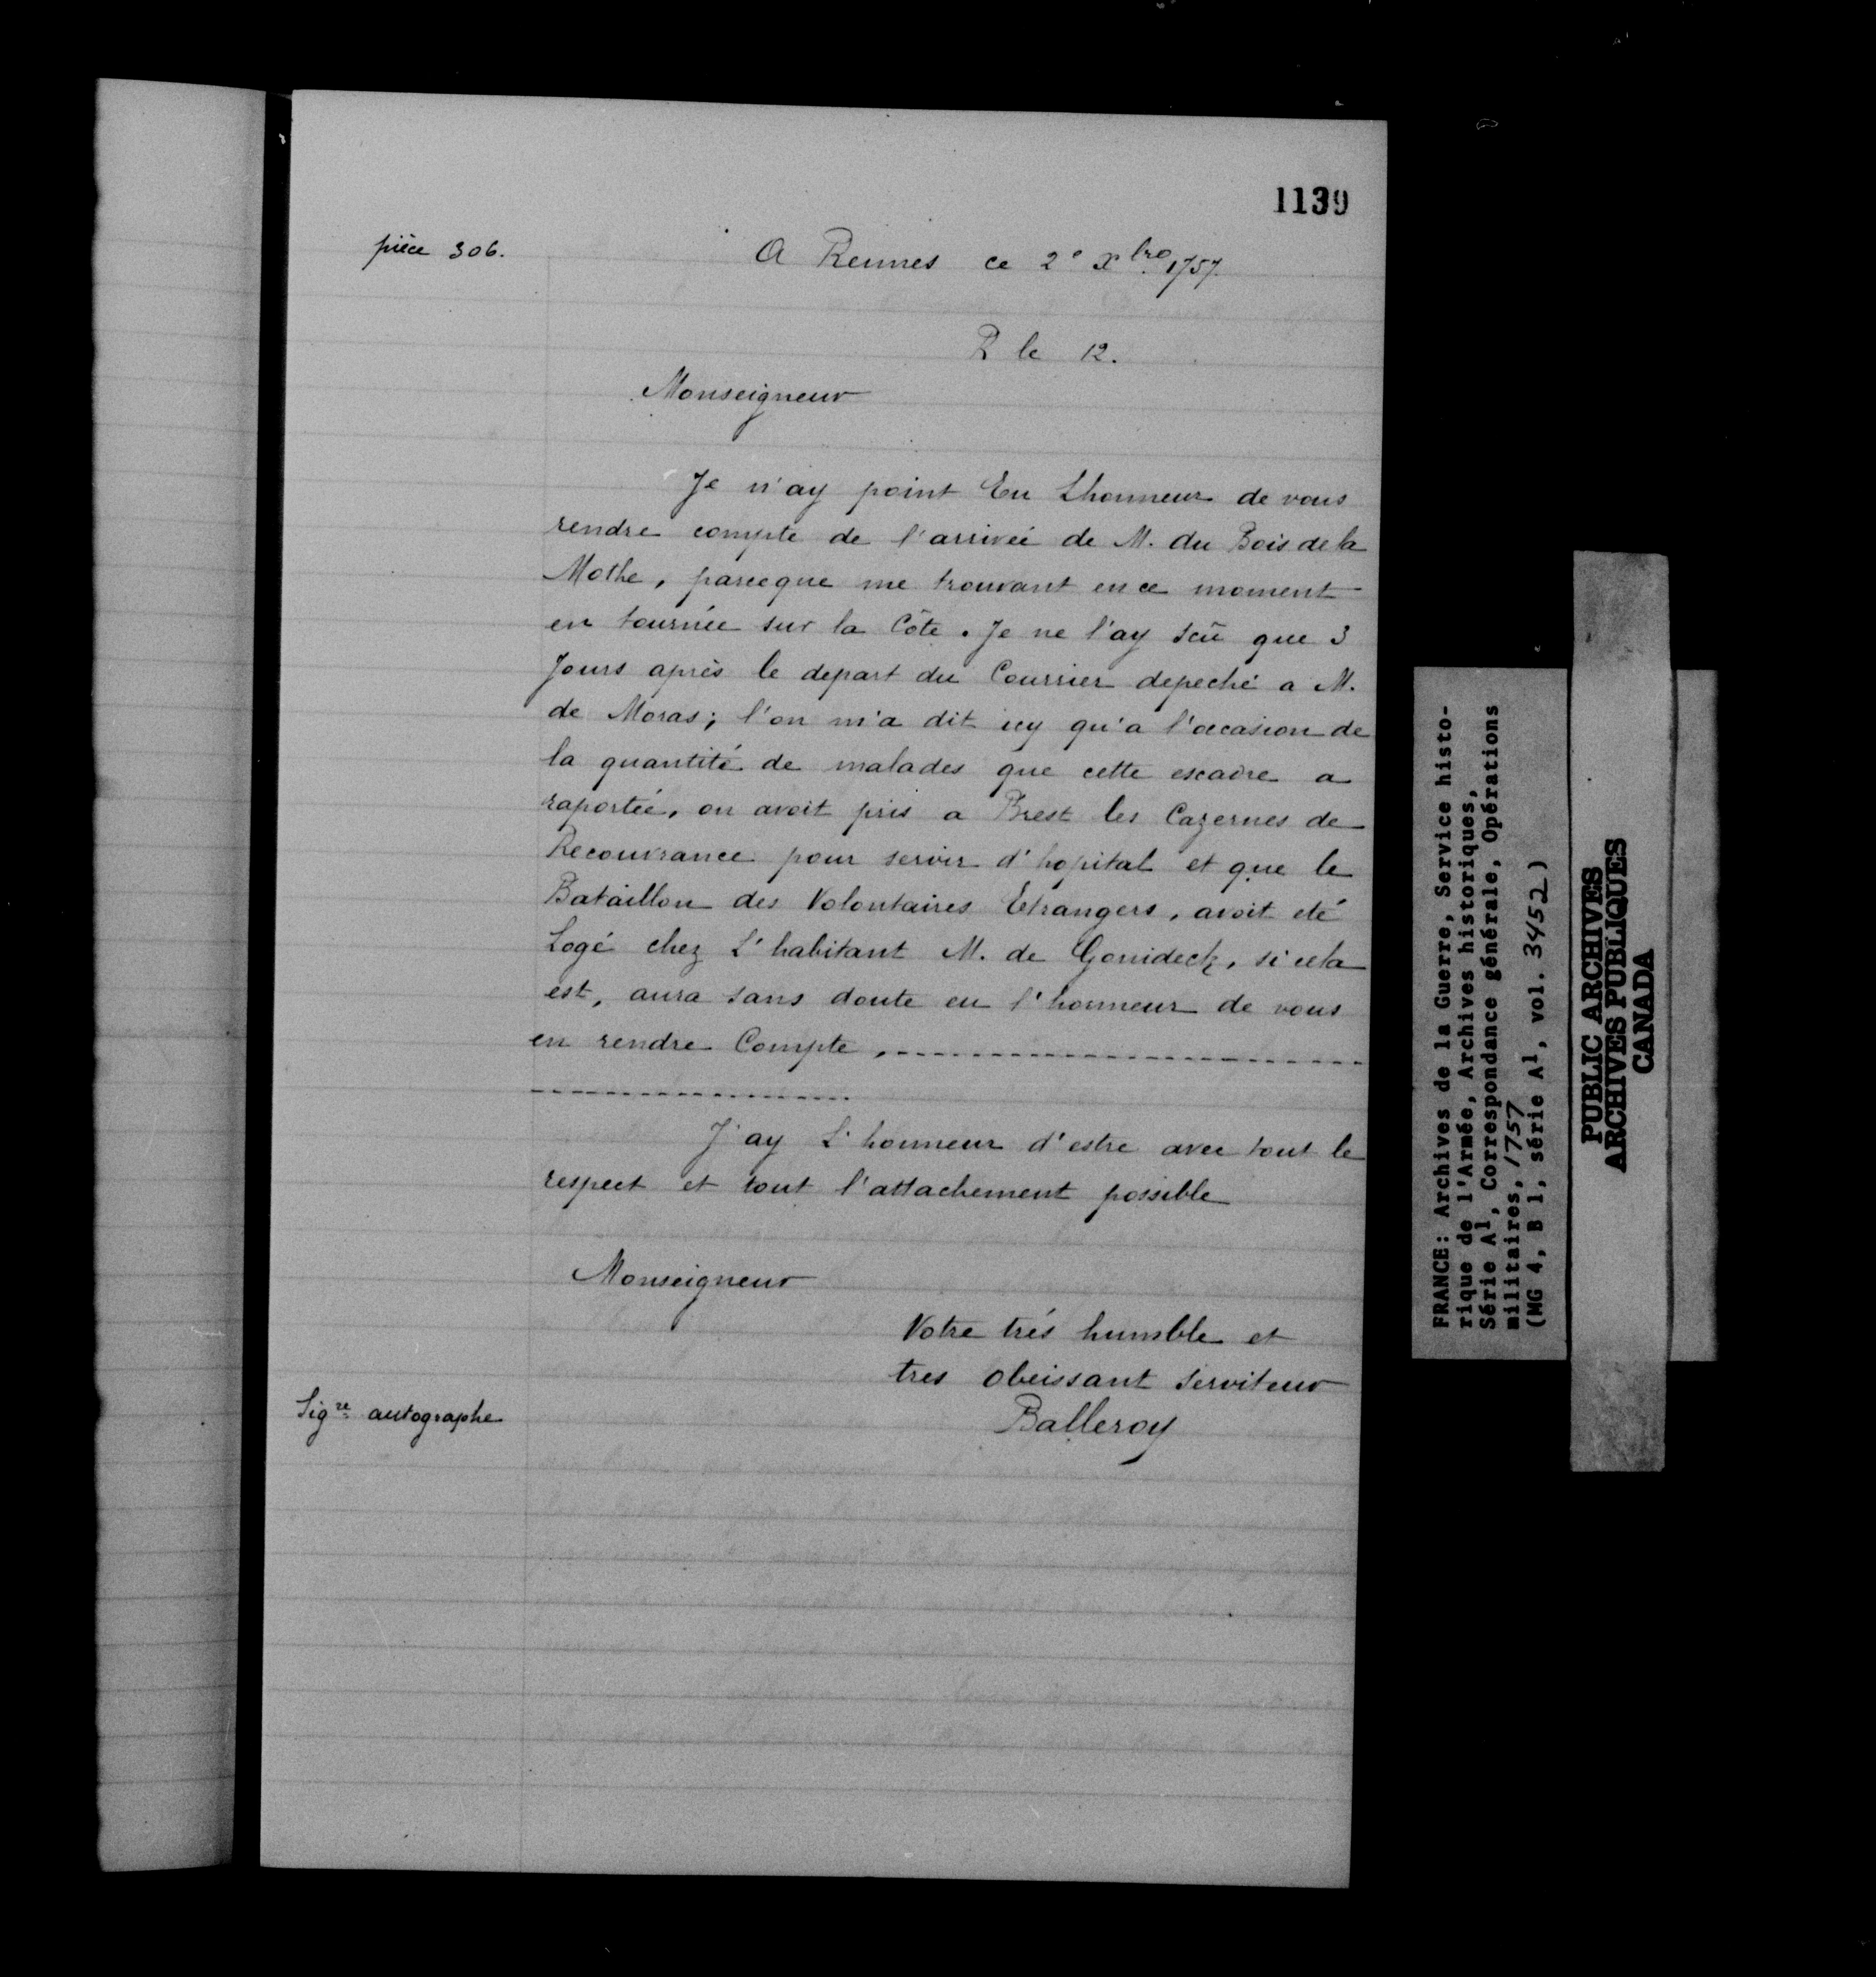 1139
pièce 306.
A Rennes ce 2e Xbre 1757.
R le 12.
Monseigneur
Je n'ay point Eu Lhonneur de vous
rendre compte de l'arrivée de M. du Bois de la
Mothe, parceque me trouvant en ce moment
en tournée sur la Côte. Je ne l'ay sçû que 3
Jours après le depart du Courrier depeché a M.
de Moras; l'on m'a dit icy qu'a l'occasion de
la quantité de malades que cette escadre a
raportée, on avoit pris a Brest les Cazernes de
Recouvrance pour servir d'hopital et que le
Bataillon des Volontaires Etrangers, avoit eté
Logé chez L'habitant M. de Gonideck, si cela
est, aura sans doute eu l'honneur de vous
en rendre Compte,
J'ay L'honneur d'estre avec tout le
respect et tout l'attachement possible
Monseigneur
Votre trés humble et
tres obeissant serviteur
Sigre autographe
Balleroy
FRANCE: Archives de la Guerre, Service histo-
rique de l'Armée, Archives historiques,
Série A1, Correspondance générale, Opérations
militaires, 1757
(MG 4, B 1, série A1, vol. 3452)
PUBLIC ARCHIVES
ARCHIVES PUBLIQUES
CANADA